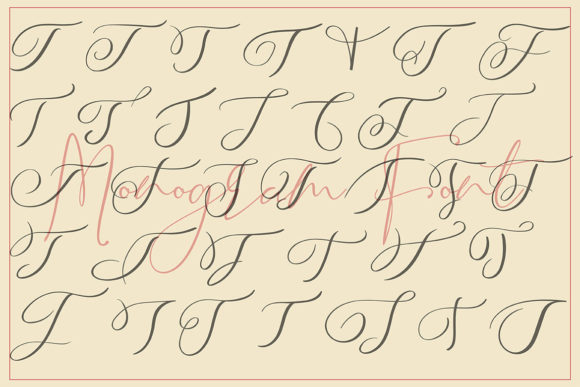 T T T T T T T
T T T T T T T
Monogram Font
T T T T T T T
T T T T T T
T T T T T T T